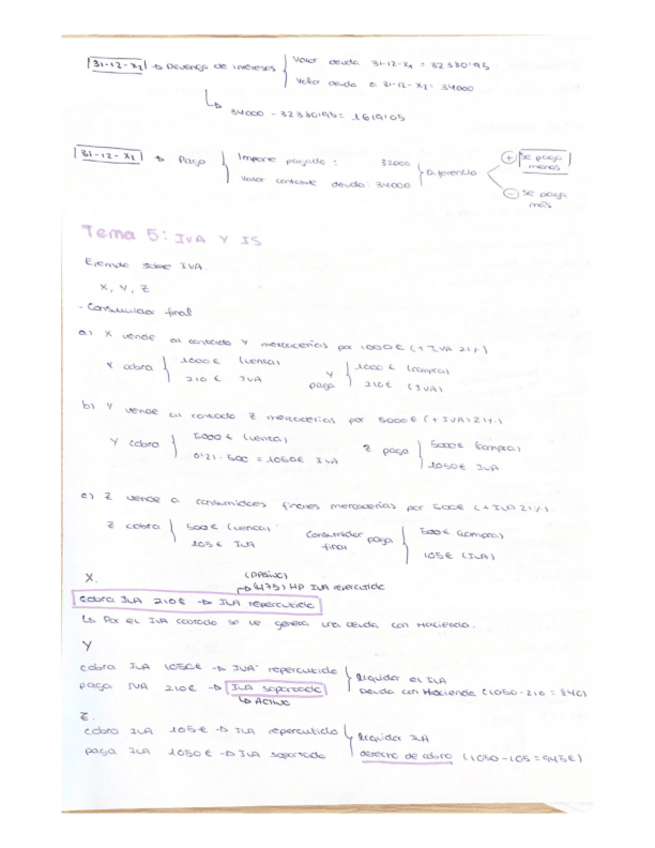 31-12-X2 → Devengo de intereses { Valor deuda 31-12-X1 = 32380'95
Valor deuda a 31-12-X2: 34000
↳ 34000 - 32380'95 = 1619'05
31-12-X2 → Pago { Importe pagado: 32000 } Diferencia + Se paga menos
Valor contable deuda: 34000 - Se paga más
Tema 5: IVA Y IS
Ejemplo sobre IVA.
X, Y, Z
- Consumidor final
a) X vende al contado Y mercaderías por 1000€ (+ IVA 21%)
X cobra { 1000€ (venta) Y paga { 1000€ (compra)
210€ IVA 210€ (IVA)
b) Y vende al contado Z mercaderías por 5000€ (+ IVA 21%)
Y cobra { 5000€ (venta) Z paga { 5000€ (compra)
0'21 · 500 = 1050€ IVA 1050€ IVA
c) Z vende a consumidores finales mercaderías por 500€ (+ IVA 21%)
Z cobra { 500€ (venta) Consumidor final paga { 500€ (compra)
105€ IVA 105€ (IVA)
X. (PASIVO)
→ (475) HP IVA repercutido
cobra IVA 210€ → IVA repercutido
↳ Por el IVA cobrado se le genera una deuda con Hacienda.
Y
cobra IVA 1050€ → IVA repercutido } liquidar el IVA
paga IVA 210€ → IVA soportado Deuda con Hacienda (1050-210 = 840)
↳ ACTIVO
Z.
cobro IVA 105€ → IVA repercutido } liquidar IVA
paga IVA 1050€ → IVA soportado derecho de cobro (1050-105 = 945€)